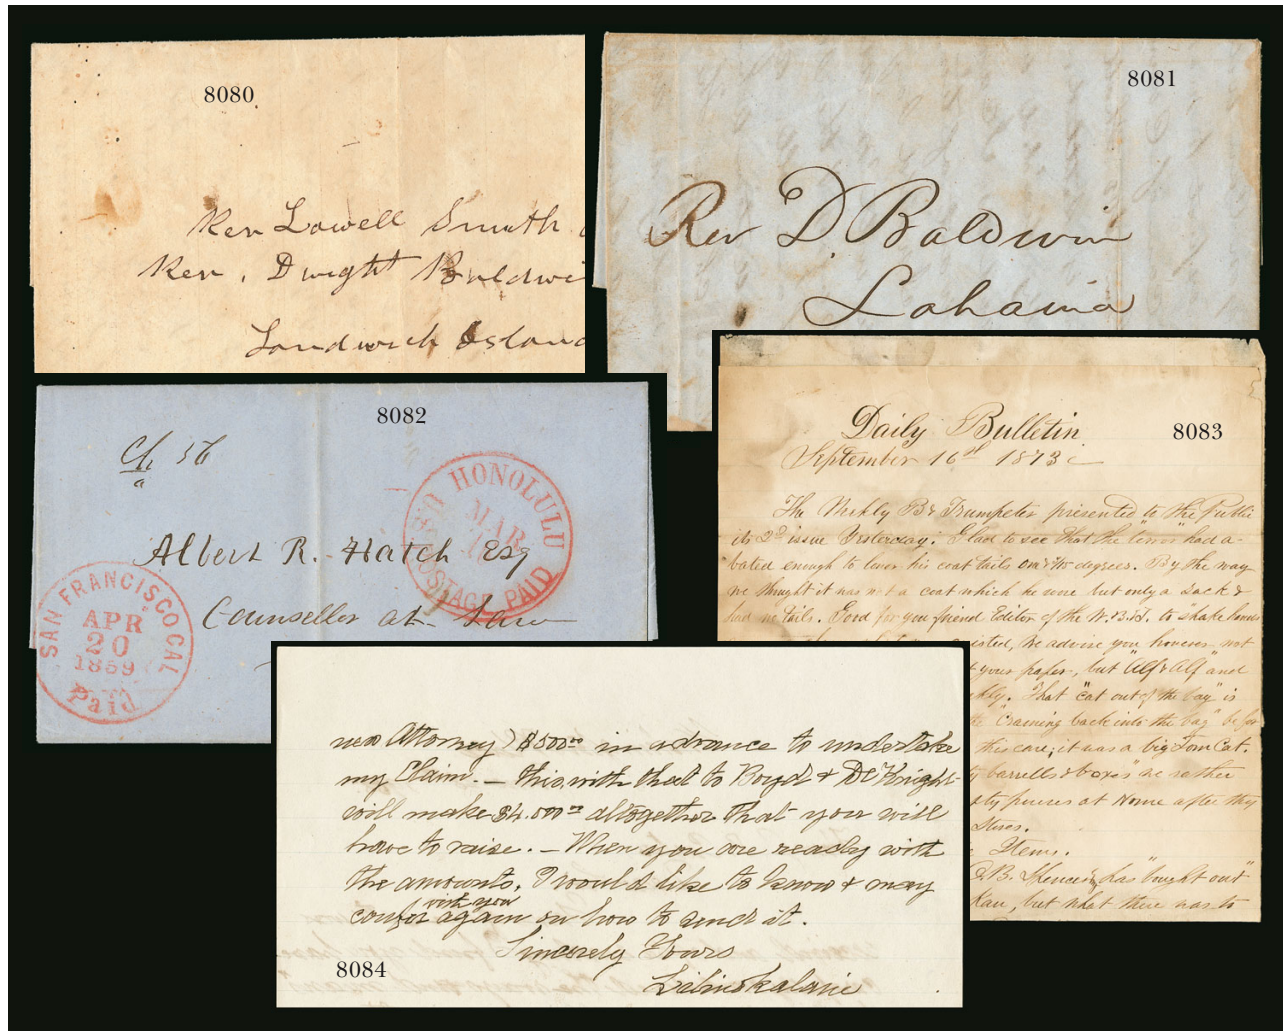 8080
Rev Lowell Smith
Rev. Dwight Baldwi
Sandwich Island
8081
Rev D. Baldwin
Lahaina
8082
Ch 36
a
HONOLULU
MAR
POSTAGE PAID
Albert R. Hatch Esq
Counsellor at Law
SAN FRANCISCO CAL
APR
20
1859
Paid
8083
Daily Bulletin
September 16th 1873
The Weekly B & Trumpeter presented to the Public
its 2d issue Yesterday. Glad to see that the "error" had a-
bated enough to lower his coat tails degrees. By the way
we thought it was not a coat which he wore but only a Sack &
had no tails. Good for you friend Editor of the W. B. & T. to shake hands
isted, we advise you however not
t your paper, but "Alf & Alf" and
kly. That "cat out of the bag" is
"Craming back into the bag" befor
this care; it was a big Tom Cat.
y barrells & boxes" we rather
sty purses at Home after thy
Stores.
Items.
B. Spencer, has "bought out"
Kau, but what there was to
new Attorney) $500.00 in advance to undertake
my Claim. — this, with that to Boyd & De Knight
will make $4.000.00 altogether that you will
have to raise. — When you are ready with
the amounts. I would like to know & may
confer with you again on how to send it.
Sincerely Yours
Liliuokalani
8084